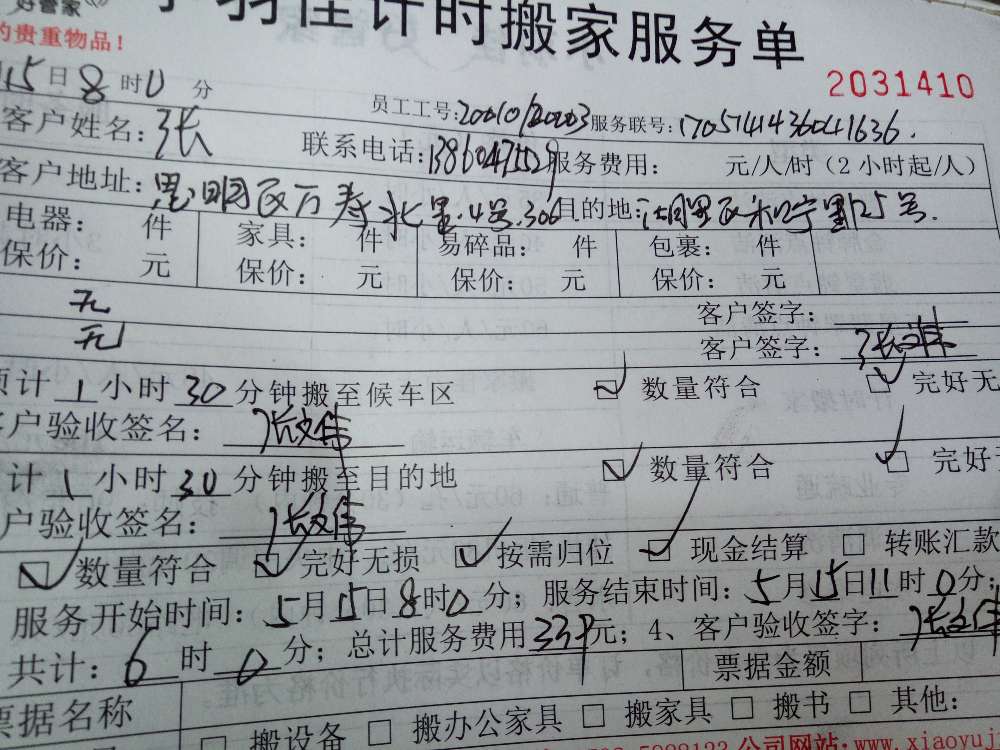 好管家
计时搬家服务单
的贵重物品！
2031410
15日8时0分
员工工号：20010/20003 服务联号：1705141436041636.
客户姓名：张 联系电话：13860475529 服务费用： 元/人/时（2小时起/人）
客户地址：思明区万寿北里.4号.306 目的地：湖里区和宁里125号.
电器： 件 家具： 件 易碎品： 件 包裹： 件
保价： 元 保价： 元 保价： 元 保价： 元
无 客户签字：
无 客户签字：张文伟
预计1小时30分钟搬至候车区 数量符合 完好无
客户验收签名：张文伟
计1小时30分钟搬至目的地 数量符合 完好
户验收签名：张文伟
数量符合 完好无损 按需归位 现金结算 转账汇款
服务开始时间：5月15日8时0分；服务结束时间：5月15日11时0分；
共计：6时0分；总计服务费用339元；4、客户验收签字：张文伟
票据金额
票据名称
搬设备 搬办公家具 搬家具 搬书 其他：
公司网站：www.xiaoyuj